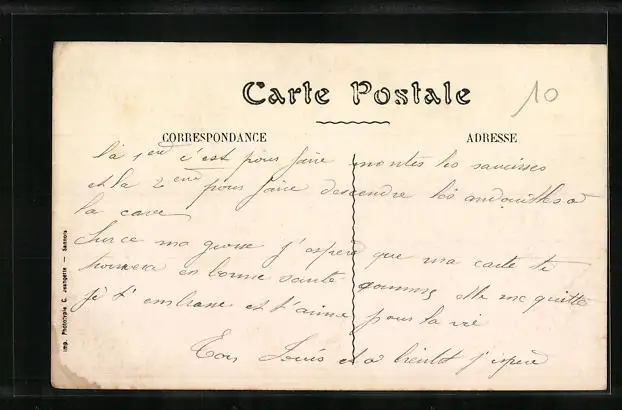 Carte Postale
10
CORRESPONDANCE
ADRESSE
la 1ere c'est pour faire monter les saucisses
et la 2eme pour faire descendre les andouilles à
la cave
Sur ce ma grosse j'espère que ma carte te
trouvera en bonne santé comme elle me quitte
je t'embrasse et t'aime pour la vie
Ton Louis et a bientot j'espère
Imp. Phototypie C. Jeangette — Sannois